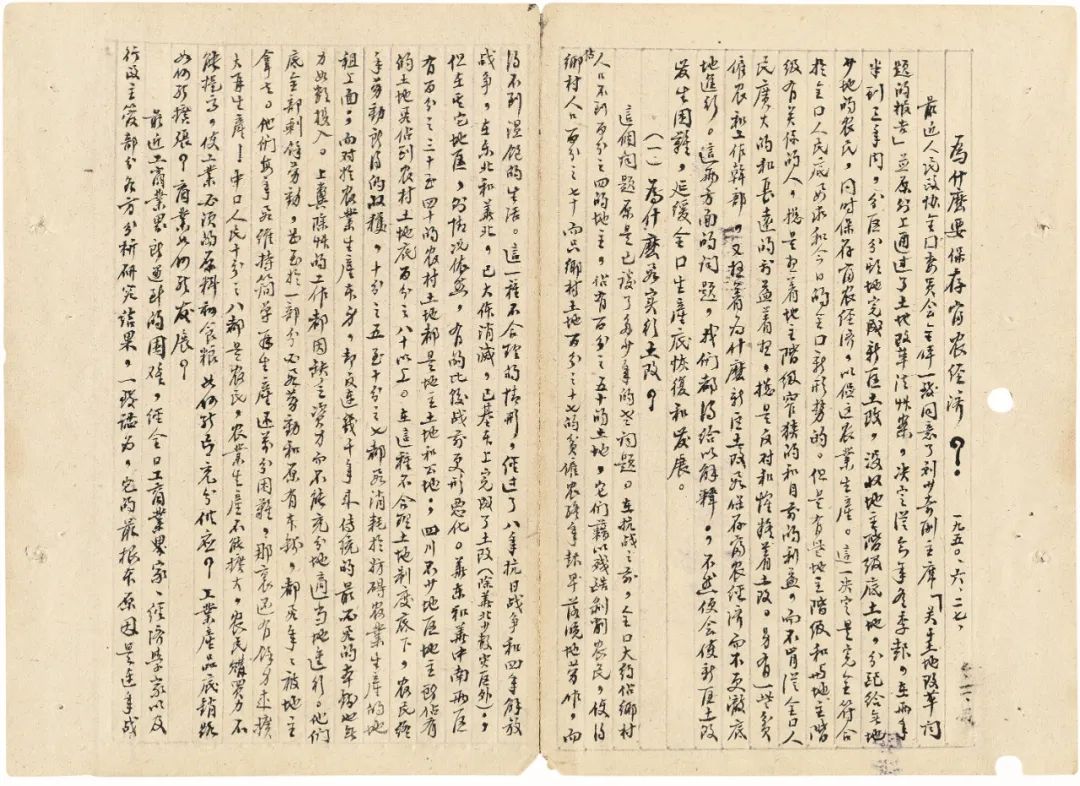 為什麽要保存富农经济？ 一九五〇、六、二七、
最近人民政协全口委员会全体一致同意了刘少奇副主席「关于土地改革问
题的报告」並原则上通过了土地改革法草案，决定从今年冬季起，在两年
半到三年内，分区分期地完成新区土改，没收地主阶级底土地，分配给无地
少地的农民，同时保存富农经济，以促进农业生产。这一决定是完全符合
於全口人民底要求和今日的全口新形势的。但是有些地主阶级和与地主阶
级有关系的人，总是想着地主阶级窄狭的和目前的利益，而不肯从全口人
民广大的和长远的利益着想，总是反对和怀疑着土改。另有一些贫
僱农和工作幹部，又想着为什麽新区土改要保存富农经济而不更澈底
地進行。这两方面的问题，我们都得给以解释；不然便会使新区土改
发生困难，延缓全口生产底恢復和发展。
（一）为什麽要实行土改？
这个问题原是已谈了多少年的老问题。在抗战之前，全口大约佔鄉村
人口不到百分之四的地主，佔有百分之五十的土地，它们藉以残酷剥削农民，使得
佔鄉村人口百分之七十而只鄉村土地百分之十七的贫僱农终年起早落晚地劳作，而
得不到温饱的生活。这一种不合理的情形，经过了八年抗日战争和四年解放
战争，在东北和華北，已大体消滅，已基本上完成了土改（除華北少数尖区外）；
但在其它地区，则情况依然，有的比較战前更形恶化。華东和華中南两区
有百分之三十至四十的农村土地都是地主土地和公地；四川不少地区地主所佔有
的土地共佔到农村土地底百分之八十以上。在这种不合理土地制度底下，农民终
年劳動所得的收穫，十分之五至十分之七都要消耗於妨碍农业生産的地
租上面；而对於农业生産本身，却反連幾千年来传统的最不充的本钱也無
力如数投入。上糞除草的工作都因缺乏资力而不能充分地適当地進行。他们
底全部剩餘劳動，甚至於一部分必要劳動和原有本錢，都要年年被地主
拿去。他们每年要维持简单再生産还万分困難，那裏还有餘力来擴
大再生産！中口人民十分之八都是农民，农业生産不能擴大，农民購買力不
能提高，使工业必须的原料和食粮如何能夠充分供应？工業産品底銷路
如何能擴張？商業如何能发展？
最近工商業界所遇到的困难，经全口工商業界家、经济学家以及
行政主管部分各方分析研究结果，一致認为，它的最根本原因是連年战